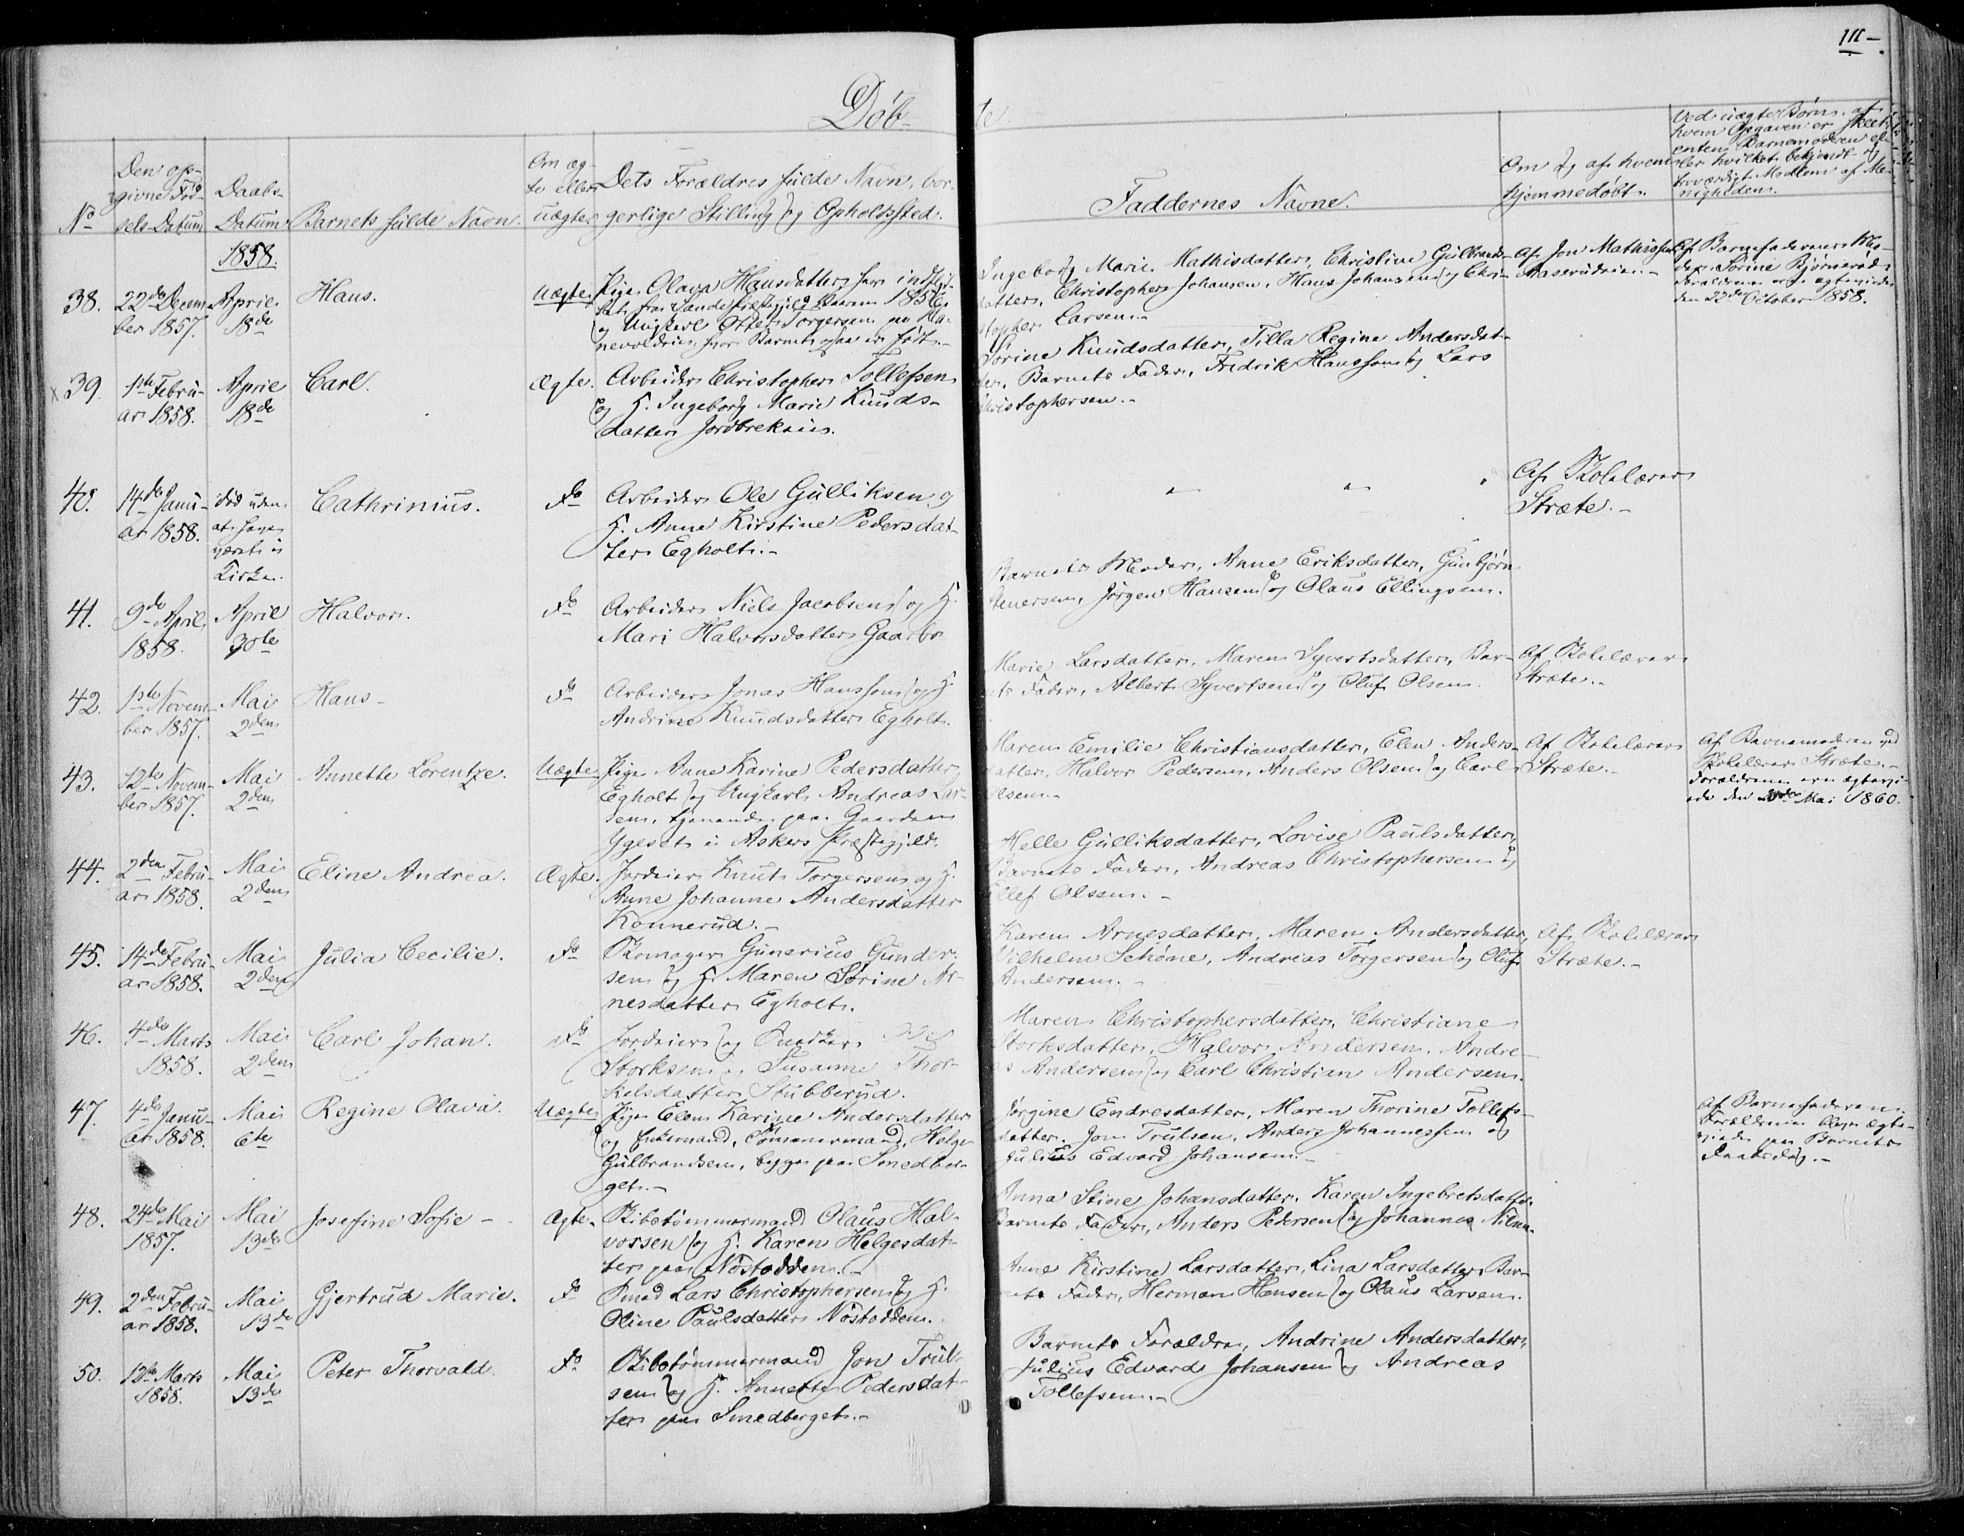 111-
Døb-
te.
No
Den op-
givne Fød-
sels-Datum
Daabs-
Datum
Barnets fulde Navn.
Om æg-
te eller
uægte
Dets Forældres fulde Navn, bor-
gerlige Stilling og Opholdssted.
Faddernes Navne.
Om og af hvem
hjemmedøbt.
Ved uægte Børn, af
hvem Opgaven er skeet,
enten Barnemoderen el-
ler hvilket bekjendt og
troværdigt Medlem af Me-
nigheden.
1858.
38.
22de Decem-
ber 1857.
April
18de
Hans.
Uægte
Pige Olava Hansdatter, her indflyt-
tet fra Sande Præstegjeld 1856
og Ungkarl Otter Torgersen
hvor Barnet ogsaa er født.
Ingeborg Marie Mathisdatter, Christine Gulbrands-
datter, Christopher Johansen, Hans Johansen og Chri-
stopher Larsen.-
Af Jon Mathissen
Af Barnefaderens Mo-
der Sørine Bjørnerød.
Forældrene ere ægteviede
den 22de October 1858.
39.
1ste Febru-
ar 1858.
April
18de
Carl.
Ægte.
Arbeider Christopher Tollefsen
og H. Ingeborg Marie Knuds-
datter Jordbrekeie.
Sørine Knudsdatter, Tilla Regine Andersdat-
ter, Barnets Fader, Fredrik Hanssen og Lars
Christophersen.-
40.
14de Janu-
ar 1858.
død uden
at have
været i
Kirke.
Cathrinius.
Do
Arbeider Ole Gulliksen og
H. Anne Kirstine Pedersdat-
ter Egholt.-
Af Skolelærer
Stræte.-
41.
9de April
1858.
April
30te
Halvor.
Do
Arbeider Niels Jacobsen og H.
Mari Halvorsdatter Gaarbo
Barnets Moder, Anne Eriksdatter, Gunbjørn
Stenersen, Jørgen Hansen og Olaus Ellingsen.
42.
1ste Novem-
ber 1857.
Mai
2den
Hans-
Do
Arbeider Jonas Hanssen og H.
Andrine Knudsdatter Egholt.
Marie Larsdatter, Maren Syvertsdatter, Bar-
nets Fader, Albert Syvertsen og Oluf Olsen.
Af Skolelærer
Stræte.-
43.
12te Novem-
ber 1857.
Mai
2den
Annette Lorentze.
Uægte
Pige Anne Karine Pedersdatter
Egholt og Ungkarl Andreas Lar-
sen, tjenende paa Gaarden
Ygeset i Askers Præstegjeld.
Maren Emilie Christiansdatter, Elen Anders-
datter, Halvor Pedersen, Anders Olsen og Carl
Olsen.-
Af Skolelærer
Stræte.-
Af Barnemoderen ved
Skolelærer Stræte.-
Forældrene ere ægtevi-
ede den Mai 1860.
44.
2den Febru-
ar 1858.
Mai
2den
Eline Andrea.
Ægte.
Jordeier Knut Torgersen og H.
Anne Johanne Andersdatter
Konnerud.-
Helle Gulliksdatter, Lovise Paulsdatter,
Barnets Fader, Andreas Christophersen og
Ellef Olssen.-
45.
14de Febru-
ar 1858.
Mai
2den
Julia Cecilie.
Do
Skomager Gunerius Gunder-
sen og H. Maren Sørine Ar-
nesdatter Egholt.
Karen Arnesdatter, Maren Andersdatter,
Vilhelm Schøne, Andreas Torgersen og Oluf
Andersen.-
Af Skolelærer
Stræte.-
46.
4de Marts
1858.
Mai
2den
Carl Johan.
Do
Jordeier og Snedker Ole
Storksen og Susanne Thor-
kelsdatter Stubberud.
Maren Christophersdatter, Christiane
Storksdatter, Halvor Andersen, Andre-
as Andersen og Carl Christian Andersen.
47.
4de Janu-
ar 1858.
Mai
6te
Regine Olava.
Uægte
Pige Elen Karine Andersdatter
og Enkemand, Tømmermand, Helge
Gulbrandsen, begge paa Smedber-
get.-
Jørgine Endresdatter, Maren Thorine Tollefs-
datter, Jon Trulsen, Anders Johannessen og
Julius Edvard Johansen.-
Af Barnefaderen.
Forældrene bleve ægte-
viede paa Barnets
Daabsdag.-
48.
24de Mai
1857.
Mai
13de
Josefine Sofie-
Ægte.
Skibstømmermand Olaus Hal-
vorsen og H. Karen Helgesdat-
ter paa Nøstodden.-
Anna Stine Johansdatter, Karen Ingebretsdatter
Barnets Fader, Anders Pedersen og Johannes Nilsen.
49.
2den Febru-
ar 1858.
Mai
13de
Gjertrud Marie.
Do
Smed Lars Christophersen og H.
Oline Paulsdatter Nøstodden.
Anne Kirstine Larsdatter, Lina Larsdatter, Bar-
nets Fader, Herman Hansen og Olaus Larsen.
50.
12te Marts
1858.
Mai
13de
Peter Thorvald.
Do
Skibstømmermand Jon Trul-
sen og H. Annette Pedersdat-
ter paa Smedberget.-
Barnets Forældre, Andrine Andersdatter,
Julius Edvard Johansen og Andreas
Tollefsen.-